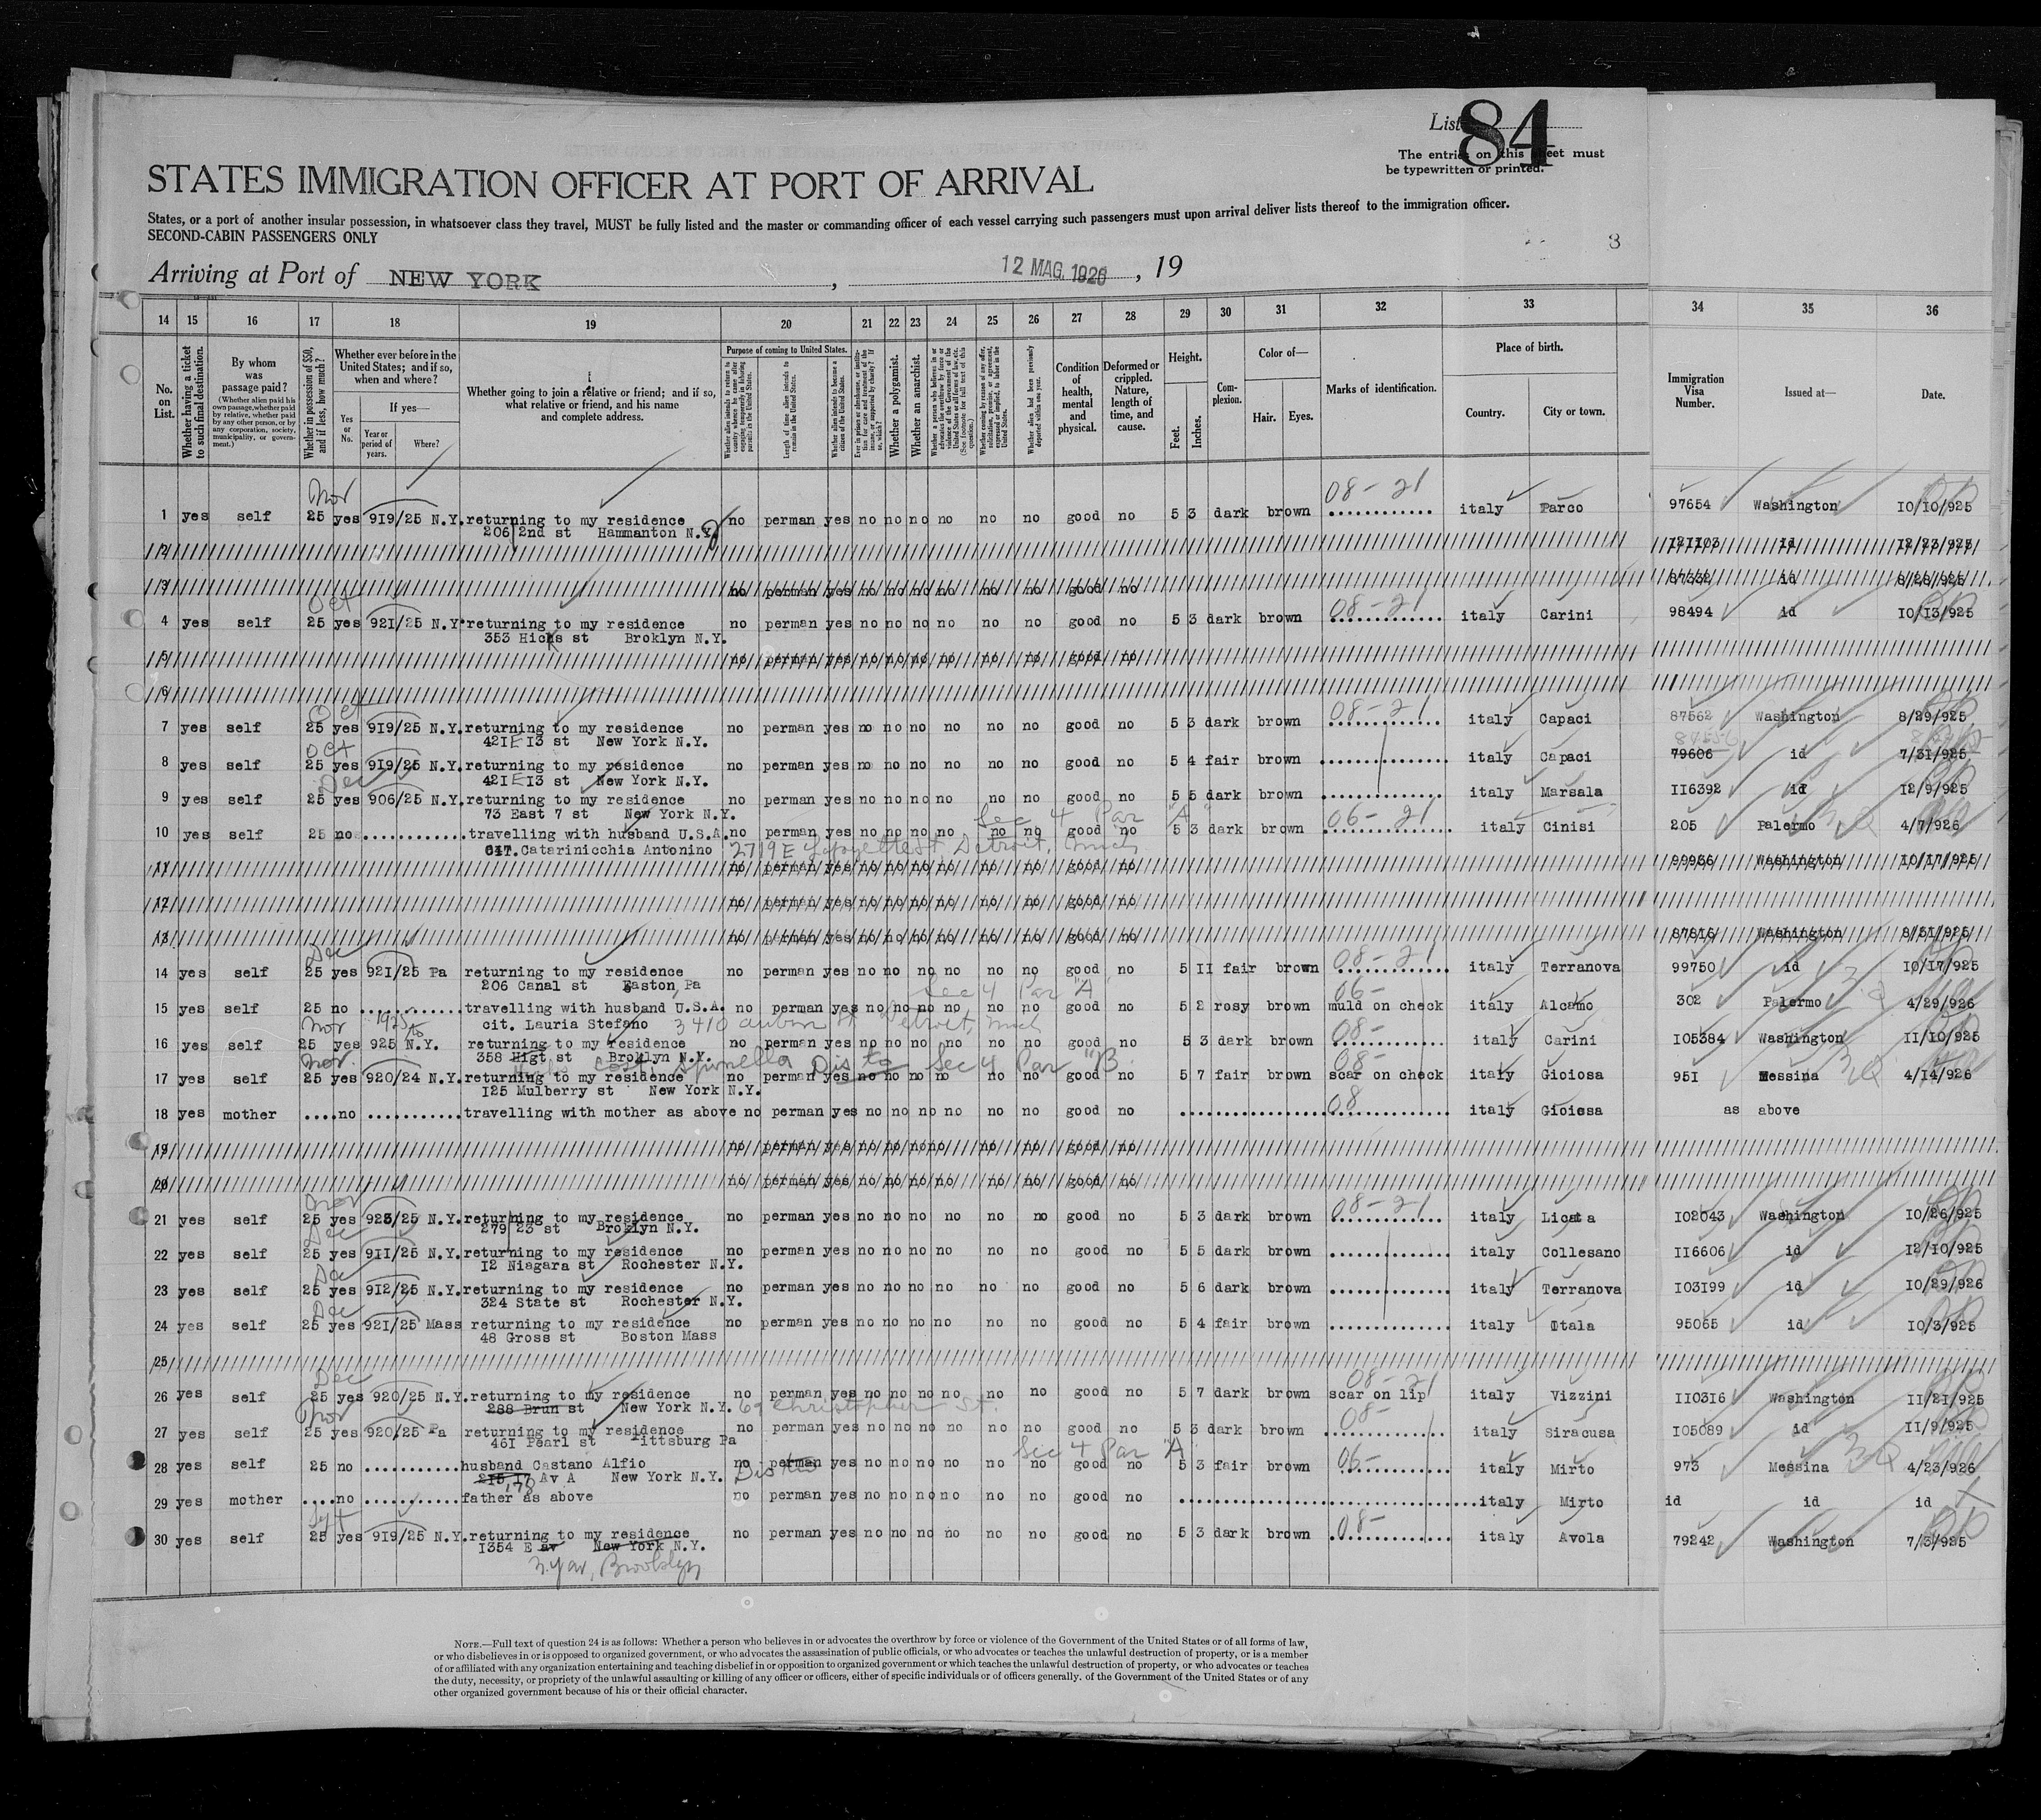 List 84
The entries on this sheet must
be typewritten or printed.
STATES IMMIGRATION OFFICER AT PORT OF ARRIVAL
States, or a port of another insular possession, in whatsoever class they travel, MUST be fully listed and the master or commanding officer of each vessel carrying such passengers must upon arrival deliver lists thereof to the immigration officer.
SECOND-CABIN PASSENGERS ONLY
3
Arriving at Port of NEW YORK, 12 MAG. 1926, 19
14 15 16 17 18 19 20 21 22 23 24 25 26 27 28 29 30 31 32 33 34 35 36
No. on List.
Whether having a ticket to such final destination.
By whom was passage paid?
(Whether alien paid his own passage, whether paid by relative, whether paid by any other person, or by any corporation, society, municipality, or government.)
Whether in possession of $50, and if less, how much?
Whether ever before in the United States; and if so, when and where?
Yes or No.
If yes—
Year or period of years.
Where?
Whether going to join a relative or friend; and if so, what relative or friend, and his name and complete address.
Purpose of coming to United States.
Length of time alien intends to remain in the United States.
Whether alien intends to become a citizen of the United States.
Whether a polygamist.
Whether an anarchist.
Condition of health, mental and physical.
Deformed or crippled. Nature, length of time, and cause.
Height.
Feet. Inches.
Complexion.
Color of—
Hair. Eyes.
Marks of identification.
Place of birth.
Country. City or town.
Immigration Visa Number.
Issued at—
Date.
Nov 08-21
1 yes self 25 yes 919/25 N.Y. returning to my residence no perman yes no no no no no no good no 5 3 dark brown italy Parco 97654 Washington 10/10/925
206 2nd st Hammanton N.Y.
2 121103 id 12/23/925
3 no perman yes no no no no no no good no 87332 id 8/28/925
Oct 08-21
4 yes self 25 yes 921/25 N.Y. returning to my residence no perman yes no no no no no no good no 5 3 dark brown italy Carini 98494 id 10/13/925
353 Hicks st Broklyn N.Y.
5 no perman yes no no no no no no good no
6
Oct 08-21
7 yes self 25 yes 919/25 N.Y. returning to my residence no perman yes no no no no no no good no 5 3 dark brown italy Capaci 87562 Washington 8/29/925
421 E 13 st New York N.Y.
Oct
8 yes self 25 yes 919/25 N.Y. returning to my residence no perman yes no no no no no no good no 5 4 fair brown italy Capaci 79606 id 7/31/925
421 E 13 st New York N.Y.
Dec
9 yes self 25 yes 906/25 N.Y. returning to my residence no perman yes no no no no no no good no 5 5 dark brown italy Marsala 116392 id 12/9/925
73 East 7 st New York N.Y.
Sec 4 Par "A" 06-21
10 yes self 25 no travelling with husband U.S.A. no perman yes no no no no no no good no 5 3 dark brown italy Cinisi 205 Palermo 4/7/926
CIT. Catarinicchia Antonino 2719 E Lafayette st Detroit, Mich
11 no perman yes no no no no no no good no 99936 Washington 10/17/925
12 no perman yes no no no no no no good no
13 no perman yes no no no no no no good no 87816 Washington 8/31/925
Dec 08-21
14 yes self 25 yes 921/25 Pa returning to my residence no perman yes no no no no no no good no 5 11 fair brown italy Terranova 99750 id 10/17/925
206 Canal st Easton, Pa
Sec 4 Par "A" 06-
15 yes self 25 no travelling with husband U.S.A. no perman yes no no no no no no good no 5 2 rosy brown muld on check italy Alcamo 302 Palermo 4/29/926
cit. Lauria Stefano 3410 Auburn st Detroit, Mich
Nov 08-
16 yes self 25 yes 925 N.Y. returning to my residence no perman yes no no no no no no good no 5 3 dark brown italy Carini 105384 Washington 11/10/925
358 Higt st Broklyn N.Y.
Nov Spinella Dis to Sec 4 Par "B" 08-
17 yes self 25 yes 920/24 N.Y. returning to my residence no perman yes no no no no no no good no 5 7 fair brown scar on check italy Gioiosa 951 Messina 4/14/926
125 Mulberry st New York N.Y.
18 yes mother no travelling with mother as above no perman yes no no no no no no good no 08 italy Gioiosa as above
19 no perman yes no no no no no no good no
20 no perman yes no no no no no no good no
Nov 08-21
21 yes self 25 yes 923/25 N.Y. returning to my residence no perman yes no no no no no no good no 5 3 dark brown italy Licata 102043 Washington 10/26/925
279 23 st Broklyn N.Y.
Dec
22 yes self 25 yes 911/25 N.Y. returning to my residence no perman yes no no no no no no good no 5 5 dark brown italy Collesano 116606 id 12/10/925
12 Niagara st Rochester N.Y.
23 yes self 25 yes 912/25 N.Y. returning to my residence no perman yes no no no no no no good no 5 6 dark brown italy Terranova 103199 id 10/29/926
324 State st Rochester N.Y.
Dec
24 yes self 25 yes 921/25 Mass returning to my residence no perman yes no no no no no no good no 5 4 fair brown italy Itala 95065 id 10/3/925
48 Gross st Boston Mass
25
Dec 08-21
26 yes self 25 yes 920/25 N.Y. returning to my residence no perman yes no no no no no no good no 5 7 dark brown scar on lip italy Vizzini 110316 Washington 11/21/925
288 Brun st New York N.Y. 69 Christopher St.
Nov 08-
27 yes self 25 yes 920/25 Pa returning to my residence no perman yes no no no no no no good no 5 3 dark brown italy Siracusa 105089 id 11/9/925
461 Pearl st Pittsburg Pa
Sec 4 Par "A" 06-
28 yes self 25 no husband Castano Alfio no perman yes no no no no no no good no 5 3 fair brown italy Mirto 973 Messina 4/23/926
215 17 Av A New York N.Y.
178
29 yes mother no father as above no perman yes no no no no no no good no italy Mirto id id id
08-
30 yes self 25 yes 919/25 N.Y. returning to my residence no perman yes no no no no no no good no 5 3 dark brown italy Avola 79242 Washington 7/3/925
1354 E av New York N.Y.
Brooklyn
NOTE.—Full text of question 24 is as follows: Whether a person who believes in or advocates the overthrow by force or violence of the Government of the United States or of all forms of law,
or who disbelieves in or is opposed to organized government, or who advocates the assassination of public officials, or who advocates or teaches the unlawful destruction of property, or is a member
of or affiliated with any organization entertaining and teaching disbelief in or opposition to organized government or which teaches the unlawful destruction of property, or who advocates or teaches
the duty, necessity, or propriety of the unlawful assaulting or killing of any officer or officers, either of specific individuals or of officers generally. of the Government of the United States or of any
other organized government because of his or their official character.